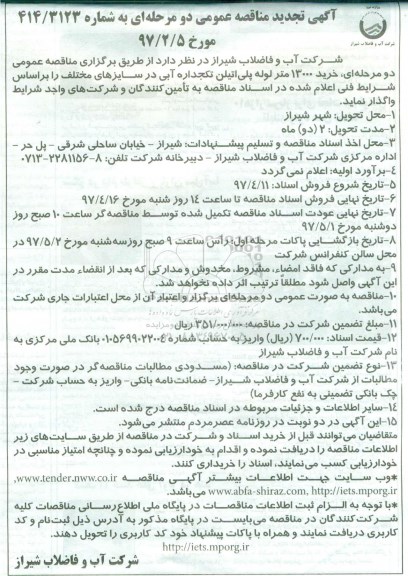 آگهی تجدید مناقصه عمومی دو مرحله‌ای به شماره ۴۱۴/۳۱۲۳
مورخ ۹۷/۲/۵
شرکت آب و فاضلاب شیراز
شرکت آب و فاضلاب شیراز در نظر دارد از طریق برگزاری مناقصه عمومی
دو مرحله‌ای، خرید ۱۳۰۰۰ متر لوله پلی‌اتیلن تکجداره آبی در سایزهای مختلف را براساس
شرایط فنی اعلام شده در اسناد مناقصه به تأمین‌کنندگان و شرکت‌های واجد شرایط
واگذار نماید.
۱-محل تحویل: شهر شیراز
۲-مدت تحویل: ۲ (دو) ماه
۳-محل اخذ اسناد مناقصه و تسلیم پیشنهادات: شیراز - خیابان ساحلی شرقی - پل حر -
اداره مرکزی شرکت آب و فاضلاب شیراز - دبیرخانه شرکت تلفن: ۸-۲۲۸۱۱۵۶-۰۷۱۳
۴-برآورد اولیه: اعلام نمی‌گردد
۵-تاریخ شروع فروش اسناد: ۹۷/۴/۱۱
۶-تاریخ نهایی فروش اسناد مناقصه تا ساعت ۱۴ روز شنبه مورخ ۹۷/۴/۱۶
۷-تاریخ نهایی عودت اسناد مناقصه تکمیل شده توسط مناقصه‌گر ساعت ۱۰ صبح روز
دوشنبه مورخ ۹۷/۵/۱
۸-تاریخ بازگشایی پاکات مرحله اول رأس ساعت ۹ صبح روز سه‌شنبه مورخ ۹۷/۵/۲ در
محل سالن کنفرانس شرکت
۹-به مدارکی که فاقد امضاء، مشروط، مخدوش و مدارکی که بعد از انقضاء مدت مقرر در
این آگهی واصل شود مطلقاً ترتیب اثر داده نخواهد شد.
۱۰-مناقصه به صورت عمومی دو مرحله‌ای برگزار و اعتبار آن از محل اعتبارات جاری شرکت
می‌باشد.
۱۱-مبلغ تضمین شرکت در مناقصه: ۳۵۱/۰۰۰/۰۰۰ ریال
۱۲-قیمت اسناد: ۷۰۰/۰۰۰ (ریال) واریز به حساب شماره ۰۱۰۵۶۹۹۰۲۲۰۰۴ بانک ملی مرکزی به
نام شرکت آب و فاضلاب شیراز
۱۳-نوع تضمین شرکت در مناقصه: (مسدودی مطالبات مناقصه‌گر در صورت وجود
مطالبات از شرکت آب و فاضلاب شیراز- ضمانت‌نامه بانکی- واریز به حساب شرکت -
چک بانکی تضمینی به نفع کارفرما)
۱۴-سایر اطلاعات و جزئیات مربوطه در اسناد مناقصه درج شده است.
۱۵-این آگهی در دو نوبت در روزنامه عصرمردم منتشر می‌شود.
متقاضیان می‌توانند قبل از خرید اسناد و شرکت در مناقصه از طریق سایت‌های زیر
اطلاعات مناقصه را دریافت نموده و اقدام به خودارزیابی نموده و چنانچه امتیاز مناسبی در
خودارزیابی کسب می‌نمایند، اسناد را خریداری کنند.
*وب سایت جهت اطلاعات بیشتر آگهی مناقصه www.tender.nww.co.ir,
www.abfa-shiraz.com, http://iets.mporg.ir می‌باشد.
*با توجه به الزام ثبت اطلاعات مناقصات در پایگاه ملی اطلاع‌رسانی مناقصات کلیه
شرکت‌کنندگان در مناقصه می‌بایست در پایگاه مذکور به آدرس ذیل ثبت‌نام و کد
کاربری دریافت نمایند و همراه با پاکات پیشنهاد خود کد کاربری را تحویل دهند.
http://iets.mporg.ir/
شرکت آب و فاضلاب شیراز